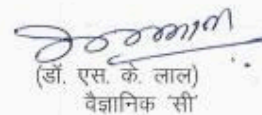 (डॉ. एस. के. लाल)
वैज्ञानिक 'सी'